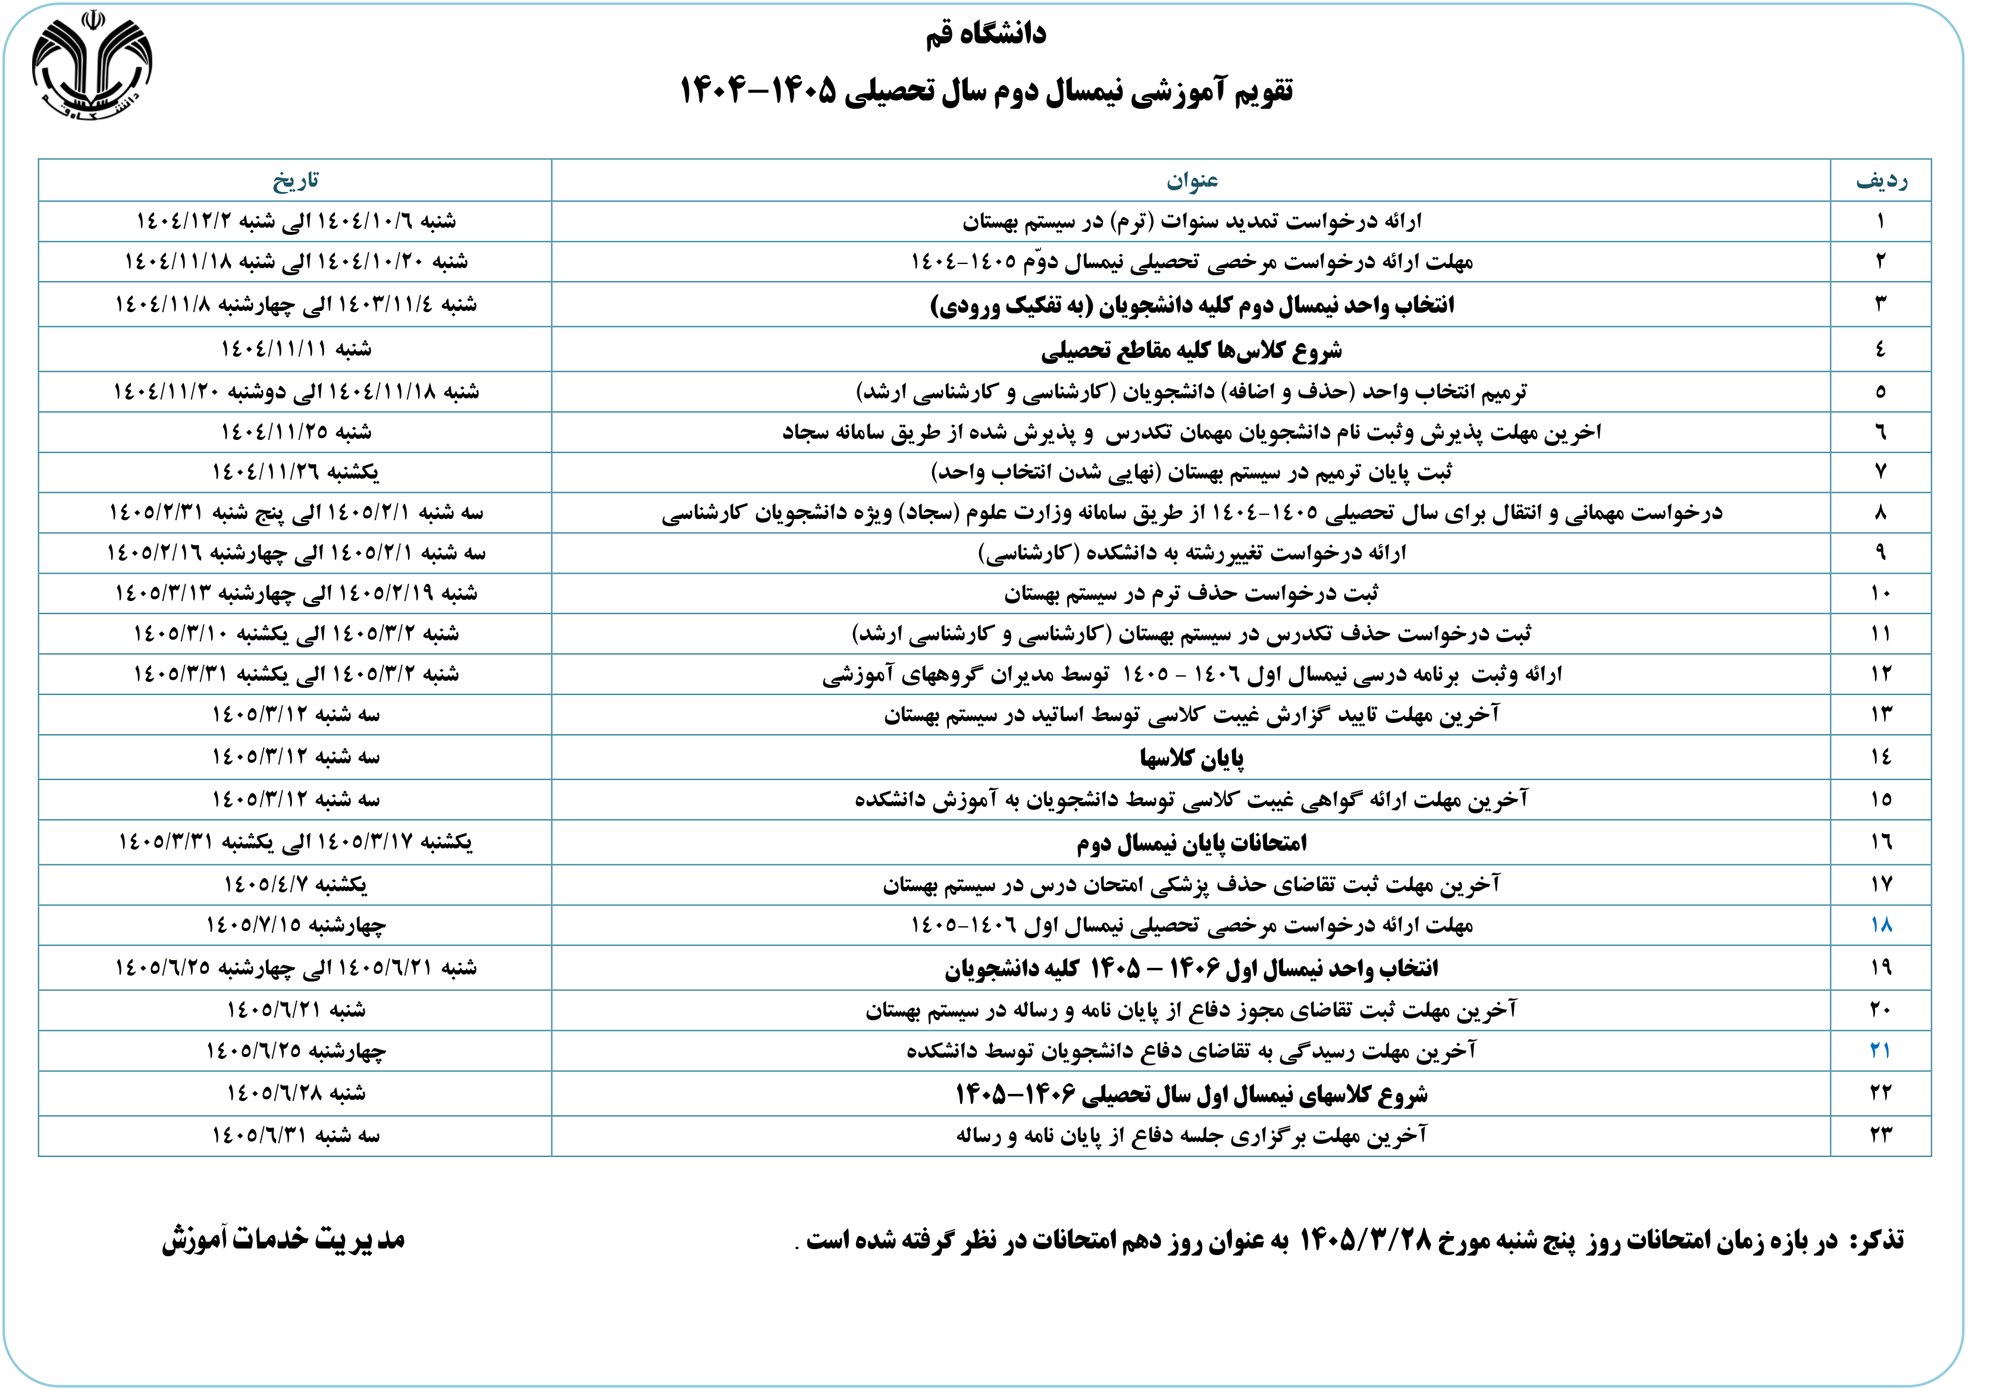 دانشگاه قم
تقویم آموزشی نیمسال دوم سال تحصیلی ۱۴۰۵-۱۴۰۴
دانشگاه قم
ردیف عنوان تاریخ
۱ ارائه درخواست تمدید سنوات (ترم) در سیستم بهستان شنبه ۱۴۰۴/۱۰/۶ الی شنبه ۱۴۰۴/۱۲/۲
۲ مهلت ارائه درخواست مرخصی تحصیلی نیمسال دوّم ۱۴۰۵-۱۴۰۴ شنبه ۱۴۰۴/۱۰/۲۰ الی شنبه ۱۴۰۴/۱۱/۱۸
۳ انتخاب واحد نیمسال دوم کلیه دانشجویان (به تفکیک ورودی) شنبه ۱۴۰۳/۱۱/۴ الی چهارشنبه ۱۴۰۴/۱۱/۸
۴ شروع کلاس‌ها کلیه مقاطع تحصیلی شنبه ۱۴۰۴/۱۱/۱۱
۵ ترمیم انتخاب واحد (حذف و اضافه) دانشجویان (کارشناسی و کارشناسی ارشد) شنبه ۱۴۰۴/۱۱/۱۸ الی دوشنبه ۱۴۰۴/۱۱/۲۰
۶ اخرین مهلت پذیرش وثبت نام دانشجویان مهمان تکدرس و پذیرش شده از طریق سامانه سجاد شنبه ۱۴۰۴/۱۱/۲۵
۷ ثبت پایان ترمیم در سیستم بهستان (نهایی شدن انتخاب واحد) یکشنبه ۱۴۰۴/۱۱/۲۶
۸ درخواست مهمانی و انتقال برای سال تحصیلی ۱۴۰۵-۱۴۰۴ از طریق سامانه وزارت علوم (سجاد) ویژه دانشجویان کارشناسی سه شنبه ۱۴۰۵/۲/۱ الی پنج شنبه ۱۴۰۵/۲/۳۱
۹ ارائه درخواست تغییررشته به دانشکده (کارشناسی) سه شنبه ۱۴۰۵/۲/۱ الی چهارشنبه ۱۴۰۵/۲/۱۶
۱۰ ثبت درخواست حذف ترم در سیستم بهستان شنبه ۱۴۰۵/۲/۱۹ الی چهارشنبه ۱۴۰۵/۳/۱۳
۱۱ ثبت درخواست حذف تکدرس در سیستم بهستان (کارشناسی و کارشناسی ارشد) شنبه ۱۴۰۵/۳/۲ الی یکشنبه ۱۴۰۵/۳/۱۰
۱۲ ارائه وثبت برنامه درسی نیمسال اول ۱۴۰۶ - ۱۴۰۵ توسط مدیران گروههای آموزشی شنبه ۱۴۰۵/۳/۲ الی یکشنبه ۱۴۰۵/۳/۳۱
۱۳ آخرین مهلت تایید گزارش غیبت کلاسی توسط اساتید در سیستم بهستان سه شنبه ۱۴۰۵/۳/۱۲
۱۴ پایان کلاسها سه شنبه ۱۴۰۵/۳/۱۲
۱۵ آخرین مهلت ارائه گواهی غیبت کلاسی توسط دانشجویان به آموزش دانشکده سه شنبه ۱۴۰۵/۳/۱۲
۱۶ امتحانات پایان نیمسال دوم یکشنبه ۱۴۰۵/۳/۱۷ الی یکشنبه ۱۴۰۵/۳/۳۱
۱۷ آخرین مهلت ثبت تقاضای حذف پزشکی امتحان درس در سیستم بهستان یکشنبه ۱۴۰۵/۴/۷
۱۸ مهلت ارائه درخواست مرخصی تحصیلی نیمسال اول ۱۴۰۶-۱۴۰۵ چهارشنبه ۱۴۰۵/۷/۱۵
۱۹ انتخاب واحد نیمسال اول ۱۴۰۶ – ۱۴۰۵ کلیه دانشجویان شنبه ۱۴۰۵/۶/۲۱ الی چهارشنبه ۱۴۰۵/۶/۲۵
۲۰ آخرین مهلت ثبت تقاضای مجوز دفاع از پایان نامه و رساله در سیستم بهستان شنبه ۱۴۰۵/۶/۲۱
۲۱ آخرین مهلت رسیدگی به تقاضای دفاع دانشجویان توسط دانشکده چهارشنبه ۱۴۰۵/۶/۲۵
۲۲ شروع کلاسهای نیمسال اول سال تحصیلی ۱۴۰۶-۱۴۰۵ شنبه ۱۴۰۵/۶/۲۸
۲۳ آخرین مهلت برگزاری جلسه دفاع از پایان نامه و رساله سه شنبه ۱۴۰۵/۶/۳۱
تذکر: در بازه زمان امتحانات روز پنج شنبه مورخ ۱۴۰۵/۳/۲۸ به عنوان روز دهم امتحانات در نظر گرفته شده است .
مدیریت خدمات آموزش